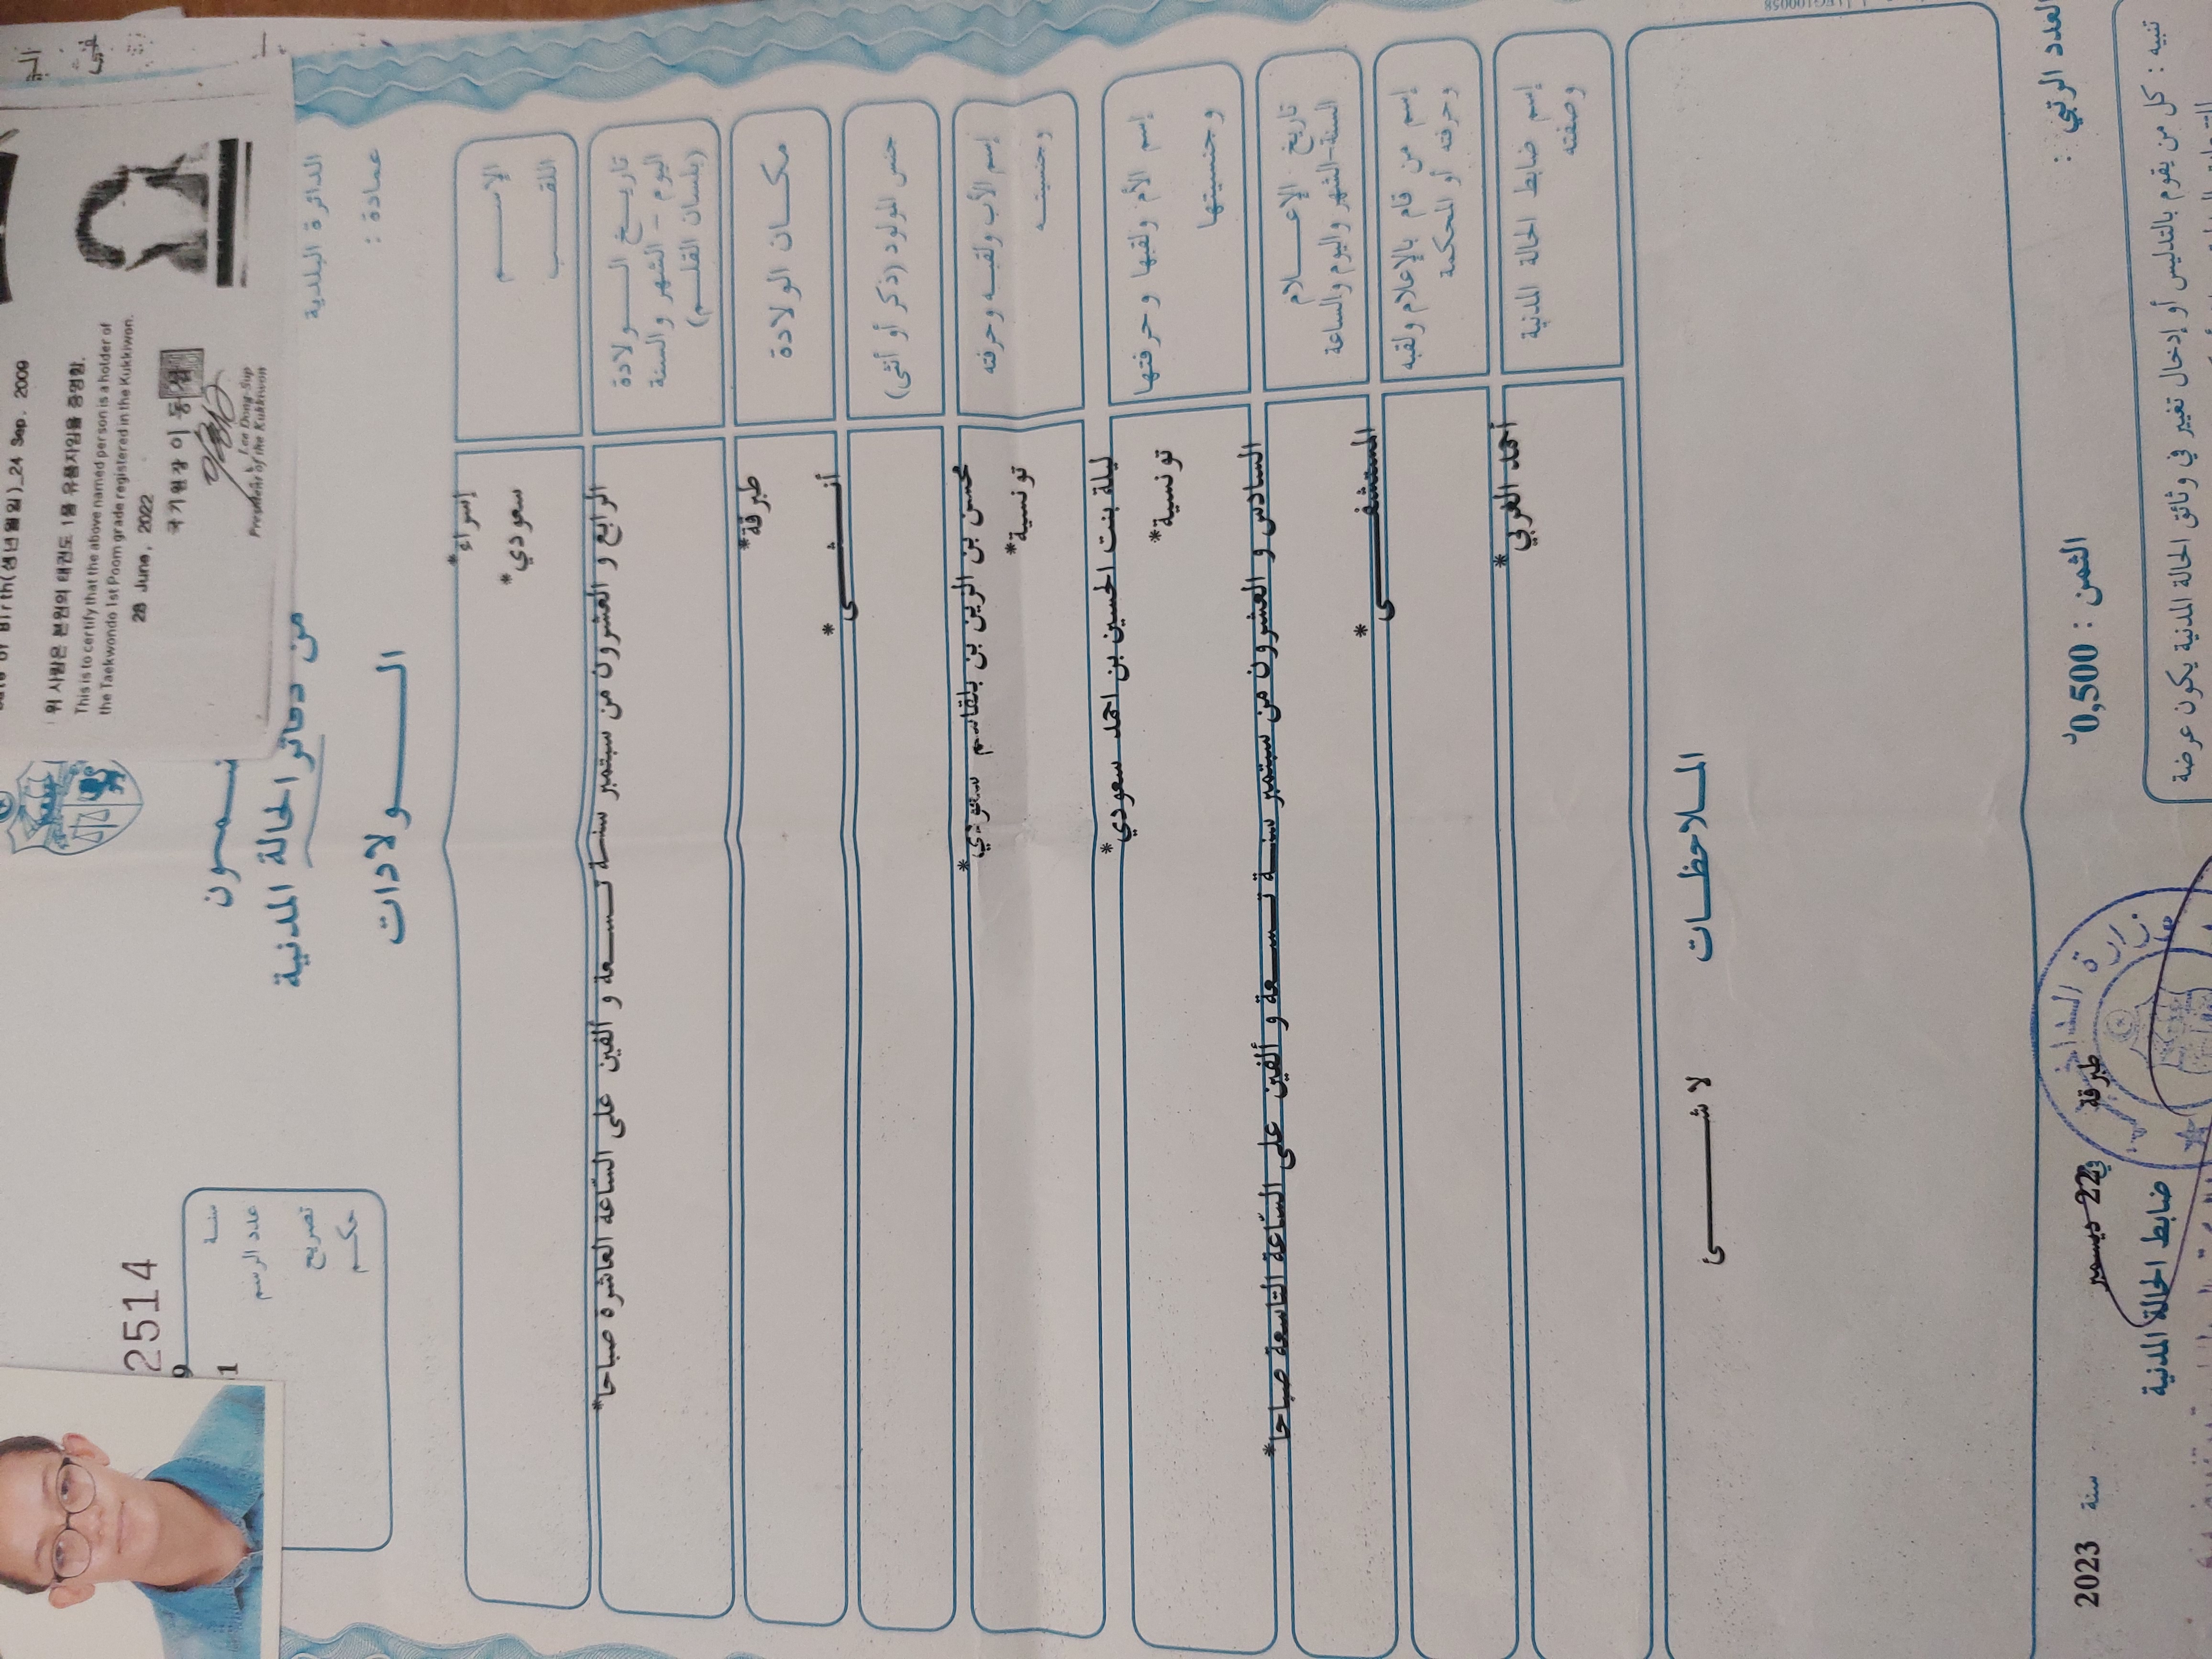 24 Sep. 2009
위 사람은 본원의 태권도 1품 유품자임을 증명함.
This is to certify that the above named person is a holder of
the Taekwondo 1st Poom grade registered in the Kukkiwon.
28 June, 2022
국기원장 이 동 섭
Lee Dong Sup
President of the Kukkiwon
2514
من دفاتر الحالة المدنية
الـــولادات
الدائرة البلدية
عمادة :
سنة
عدد الرسم
1
تصريح
حكم
الإســـم
إسراء*
اللقـــب
سعودي*
تاريــخ الــولادة
اليوم – الشهر والسنة
(بلسان القلــم)
الرابع و العشرون من سبتمبر سنة تسعة و ألفين على الساعة العاشرة صباحا*
مكــان الولادة
طبرقة*
جنس المولود (ذكر أو أنثى)
أنثى *
إسم الأب ولقبــه وحرفته
وجنسيتــه
محسن بن الزين بن بلقاسم سعودي*
تونسية*
إسم الأم ولقبها وحرفتها
وجنسيتها
ليلة بنت الحسين بن احمد سعودي*
تونسية*
تاريخ الإعــلام
السنة-الشهر واليوم والساعة
السادس و العشرون من سبتمبر سنة تسعة و ألفين على الساعة التاسعة صباحا*
إسم من قام بالإعلام ولقبه
وحرفته أو المحكمة
المستشفى *
إسم ضابط الحالة المدنية
وصفته
أحمد العربي *
الملاحظــات
لا شئ
العدد الرتبي :
الثمن : 0,500د
طبرقة في 22 ديسمبر سنة 2023
ضابط الحالة المدنية
تنبيه : كل من يقوم بالتدليس أو إدخال تغيير في وثائق الحالة المدنية يكون عرضة